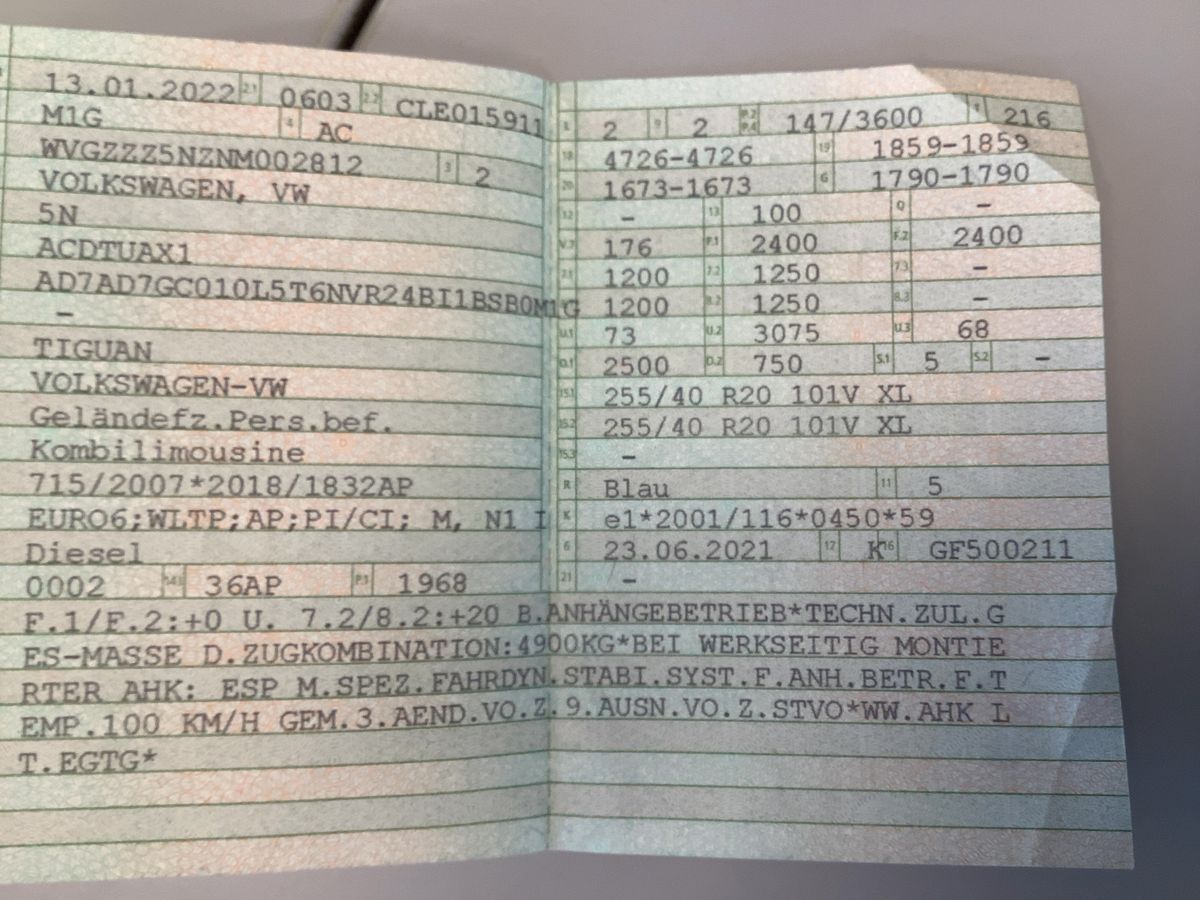 13.01.2022 2.1 0603 2.2 CLE015911
M1G 4 AC
WVGZZZ5NZNM002812 3 2
VOLKSWAGEN, VW
5N
ACDTUAX1
AD7AD7GC010L5T6NVR24BI1BSB0M1G
–
TIGUAN
VOLKSWAGEN-VW
Geländefz.Pers.bef.
Kombilimousine
715/2007*2018/1832AP
EURO6;WLTP;AP;PI/CI; M, N1 I
Diesel
0002 14.1 36AP P.1 1968
L 2 9 2 P.2 P.4 147/3600 T 216
18 4726-4726 19 1859-1859
20 1673-1673 G 1790-1790
12 – 13 100 Q –
V.7 176 F.1 2400 F.2 2400
7.1 1200 7.2 1250 7.3 –
1200 8.2 1250 8.3 –
U.1 73 U.2 3075 U.3 68
O.1 2500 O.2 750 S.1 5 S.2 –
15.1 255/40 R20 101V XL
15.2 255/40 R20 101V XL
15.3 –
R Blau 11 5
K e1*2001/116*0450*59
6 23.06.2021 17 K 16 GF500211
21 –
F.1/F.2:+0 U. 7.2/8.2:+20 B.ANHÄNGEBETRIEB*TECHN.ZUL.G
ES-MASSE D.ZUGKOMBINATION:4900KG*BEI WERKSEITIG MONTIE
RTER AHK: ESP M.SPEZ.FAHRDYN.STABI.SYST.F.ANH.BETR.F.T
EMP.100 KM/H GEM.3.AEND.VO.Z.9.AUSN.VO.Z.STVO*WW.AHK L
T.EGTG*